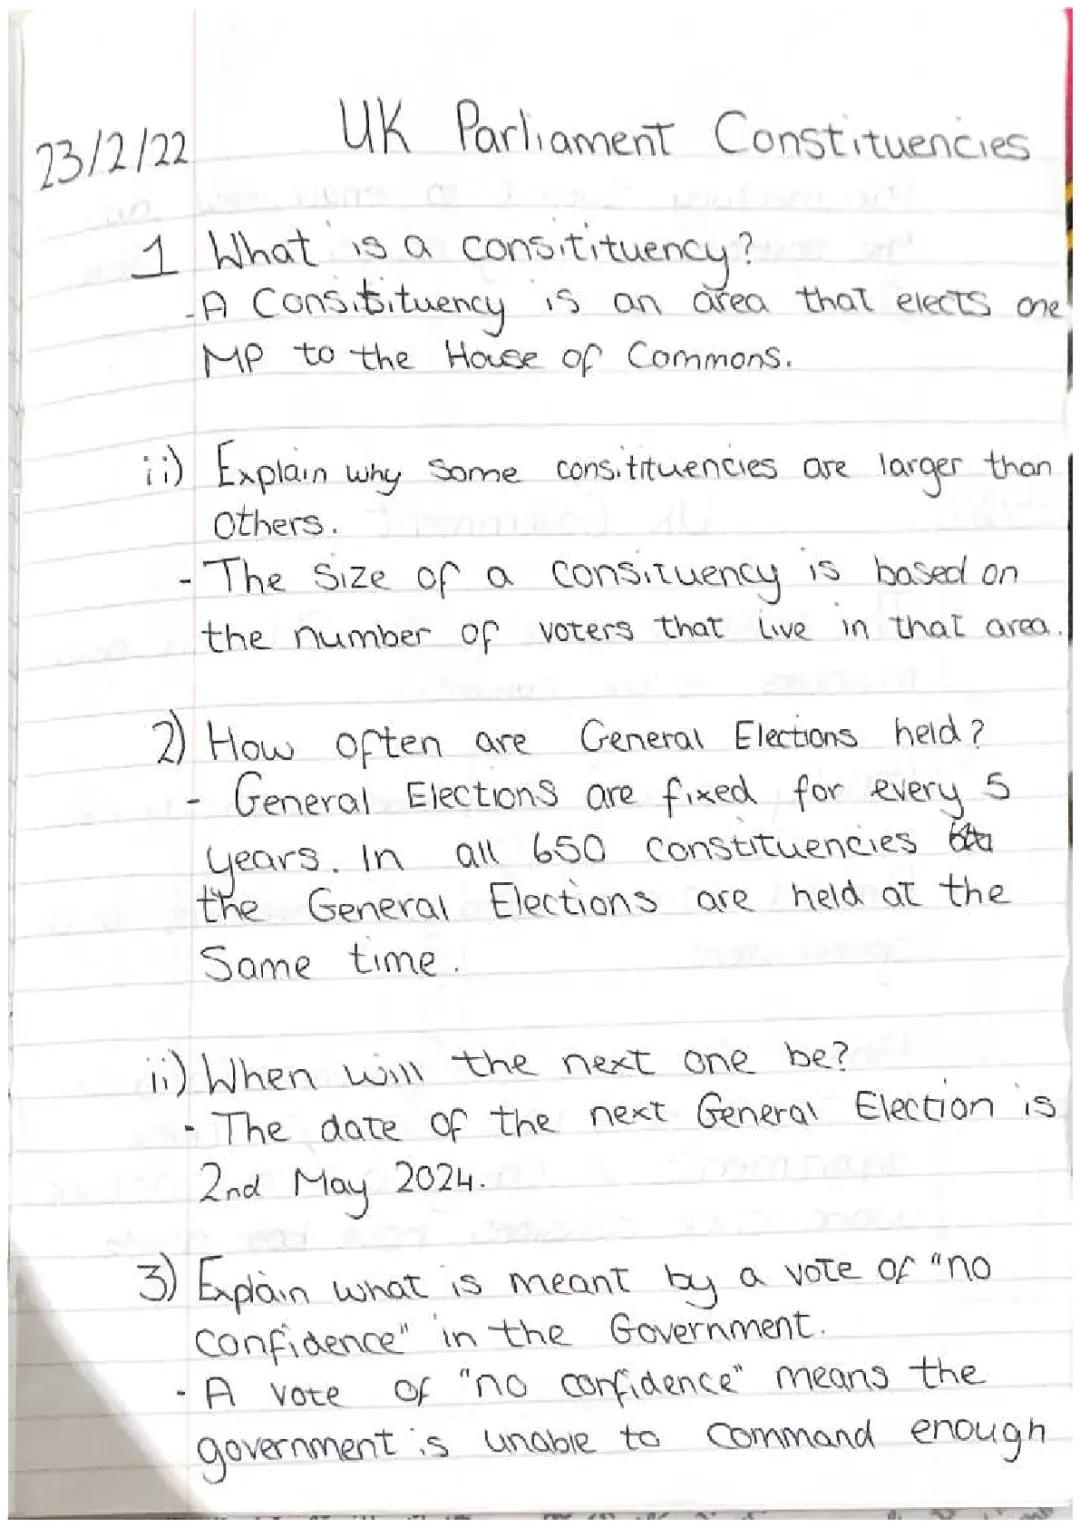 UK Parliament Constituencies
23/2/22
1 What is a consitituency?
- A Consitituency is an area that elects one
MP to the House of Commons.
ii) Explain why some consitituencies are larger than
others.
- The size of a consituency is based on
the number of voters that live in that area.
2) How often are General Elections held?
- General Elections are fixed for every 5
years. In all 650 constituencies
the General Elections are held at the
Same time.
ii) When will the next one be?
- The date of the next General Election is
2nd May 2024.
3) Explain what is meant by a vote of "no
confidence" in the Government.
- A vote of "no confidence" means the
government is unable to command enough